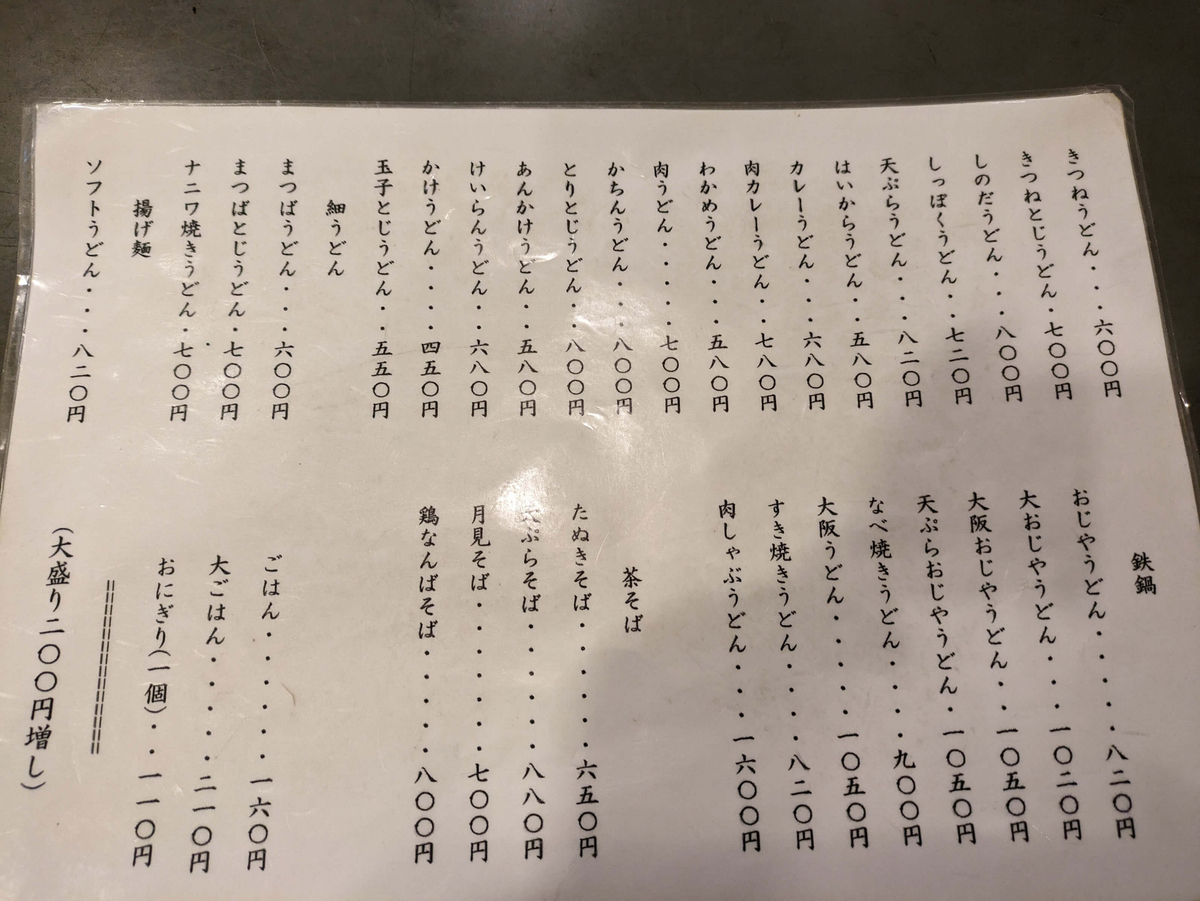 きつねうどん・・・六〇〇円
きつねとじうどん・七〇〇円
しのだうどん・・・八〇〇円
しっぽくうどん・・七二〇円
天ぷらうどん・・・八二〇円
はいからうどん・・五八〇円
カレーうどん・・・六八〇円
肉カレーうどん・・七八〇円
わかめうどん・・・五八〇円
肉うどん・・・・・七〇〇円
かちんうどん・・・八〇〇円
とりとじうどん・・八〇〇円
あんかけうどん・・五八〇円
けいらんうどん・・六八〇円
かけうどん・・・・四五〇円
玉子とじうどん・・五五〇円
細うどん
まつばうどん・・・六〇〇円
まつばとじうどん・七〇〇円
ナニワ焼きうどん・七〇〇円
揚げ麺
ソフトうどん・・・八二〇円
鉄鍋
おじやうどん・・・・・八二〇円
大おじやうどん・・・一〇二〇円
大阪おじやうどん・・一〇五〇円
天ぷらおじやうどん・一〇五〇円
なべ焼きうどん・・・・九〇〇円
大阪うどん・・・・・一〇五〇円
すき焼きうどん・・・・八二〇円
肉しゃぶうどん・・・一六〇〇円
茶そば
たぬきそば・・・・・・六五〇円
ぷらそば・・・・・・八八〇円
月見そば・・・・・・・七〇〇円
鶏なんばそば・・・・・八〇〇円
ごはん・・・・・・一六〇円
大ごはん・・・・・二一〇円
おにぎり(一個)・・一一〇円
(大盛り二〇〇円増し)